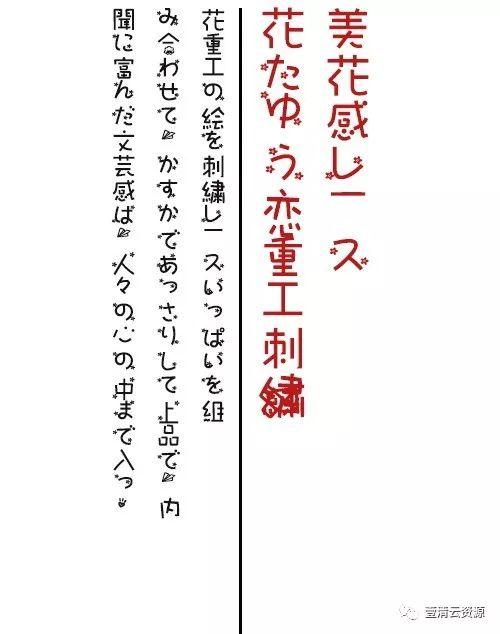 美花感レース
花たゆう恋重工刺繍
花重工の絵を刺繍レースいっぱいを組
み合わせて かすかであっさりして上品で 内
聞に富んだ文芸感は 人々の心の中まで入っ
壹清云资源